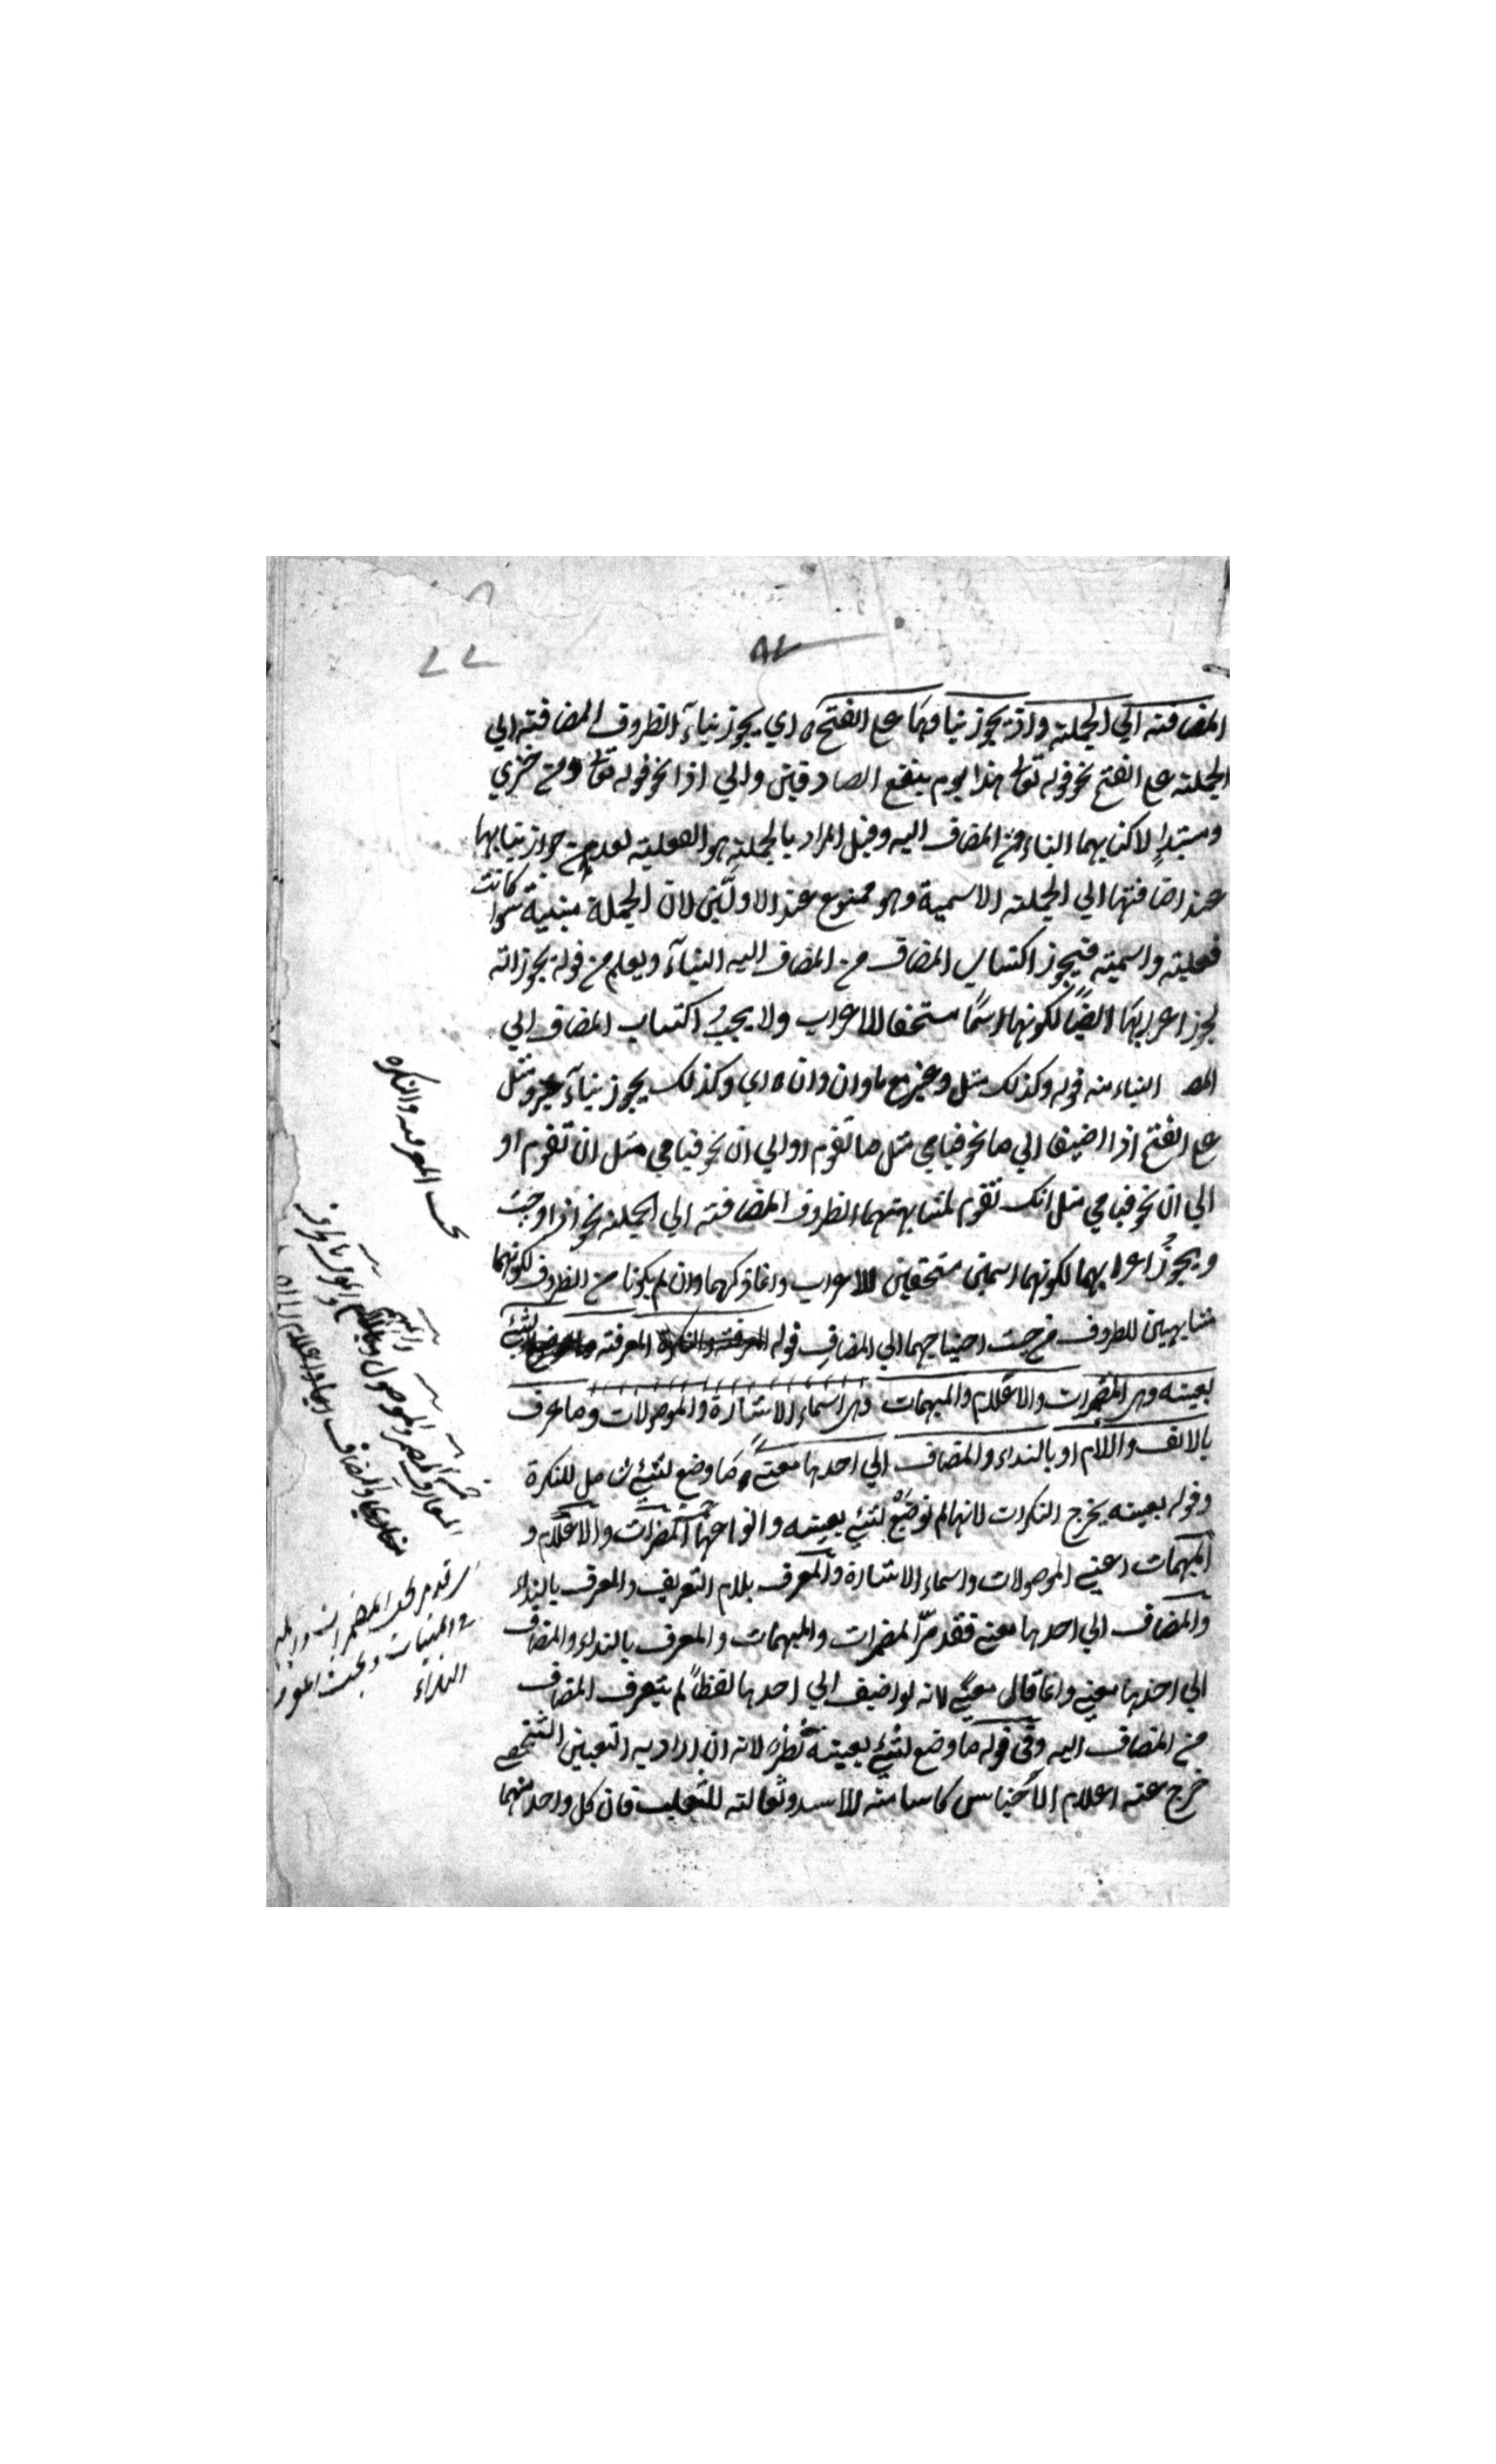 ٨٢
٢٢
المضافته الي الجملته واذ يجوز بناوها علي الفتح ه اي يجوز بناء الظروف المضافته الي
الجملته علي الفتح نحو قوله تعالى هذا يوم ينفع الصادقين والي اذا نحو قوله تعالى ومن خزي
اليه وقيل المراد بالجملته هو الفعليته لعدم جواز بنايها
عند اضافتها الي الجملته الاسمية وهو ممنوع عند الاولين لان الجملة مبنية سوا كانت
فعليته واسميته فيجوز اكتساب المضاف من المضاف اليه البناء ويعلم من قوله يجوز انه
يجوز اعرابها ايضا لكونها اسما مستحقا للاعراب ولا يجب اكتساب المضاف الي
المض البناء منه قوله وكذلك مثل وغير مع ما وان وان ه اي وكذلك يجوز بناء غير ومثل
علي الفتح اذا اضيفا الي ما نحو قيامي مثل ما تقوم او الي ان نحو قيامي مثل ان تقوم او
الي ان نحو قيامي مثل انك تقوم لمشابهتهما الظروف المضافته الي الجملته نحو اذا وحيث
ويجوز اعرابهما لكونهما اسمين مستحقين للاعراب وانما ذكرهما وان لم يكونا من الظروف لكونهما
مشابهين للظروف من حيث احتياجهما الي المضاف قوله المعرفته والنكرة المعرفته ما وضع لشئ
بعينه وهي المضمرات والاعلام والمبهمات وهي اسماء الاشارة والموصولات وما عرف
بالالف واللام او بالنداء والمضاف الي احدها معني ه ما وضع لشئ شامل للنكرة
وقوله بعينه يخرج النكرات لانها لم توضع لشئ بعينه وانواعها المضمرات والاعلام و
المبهمات اعني الموصولات واسماء الاشارة والمعرف بلام التعريف والمعرف بالنداء
والمضاف الي احدها معني فقد مر المضمرات والمبهمات والمعرف بالنداء والمضاف
الي احدها معني وانما قال معني لانه لو اضيف الي احدها لفظا لم يتعرف المضاف
من المضاف اليه وفي قوله ما وضع لشئ بعينه نظر لانه ان اراد به التعيين الشخصي
خرج عنه اعلام الاجناس كاسامته للاسد وثعالته للثعلب فان كل واحد منهما
المعرفه والنكره
المعارف المضمر والموصول
والمضاف
المضمرات
المبنيات وبحث
النداء